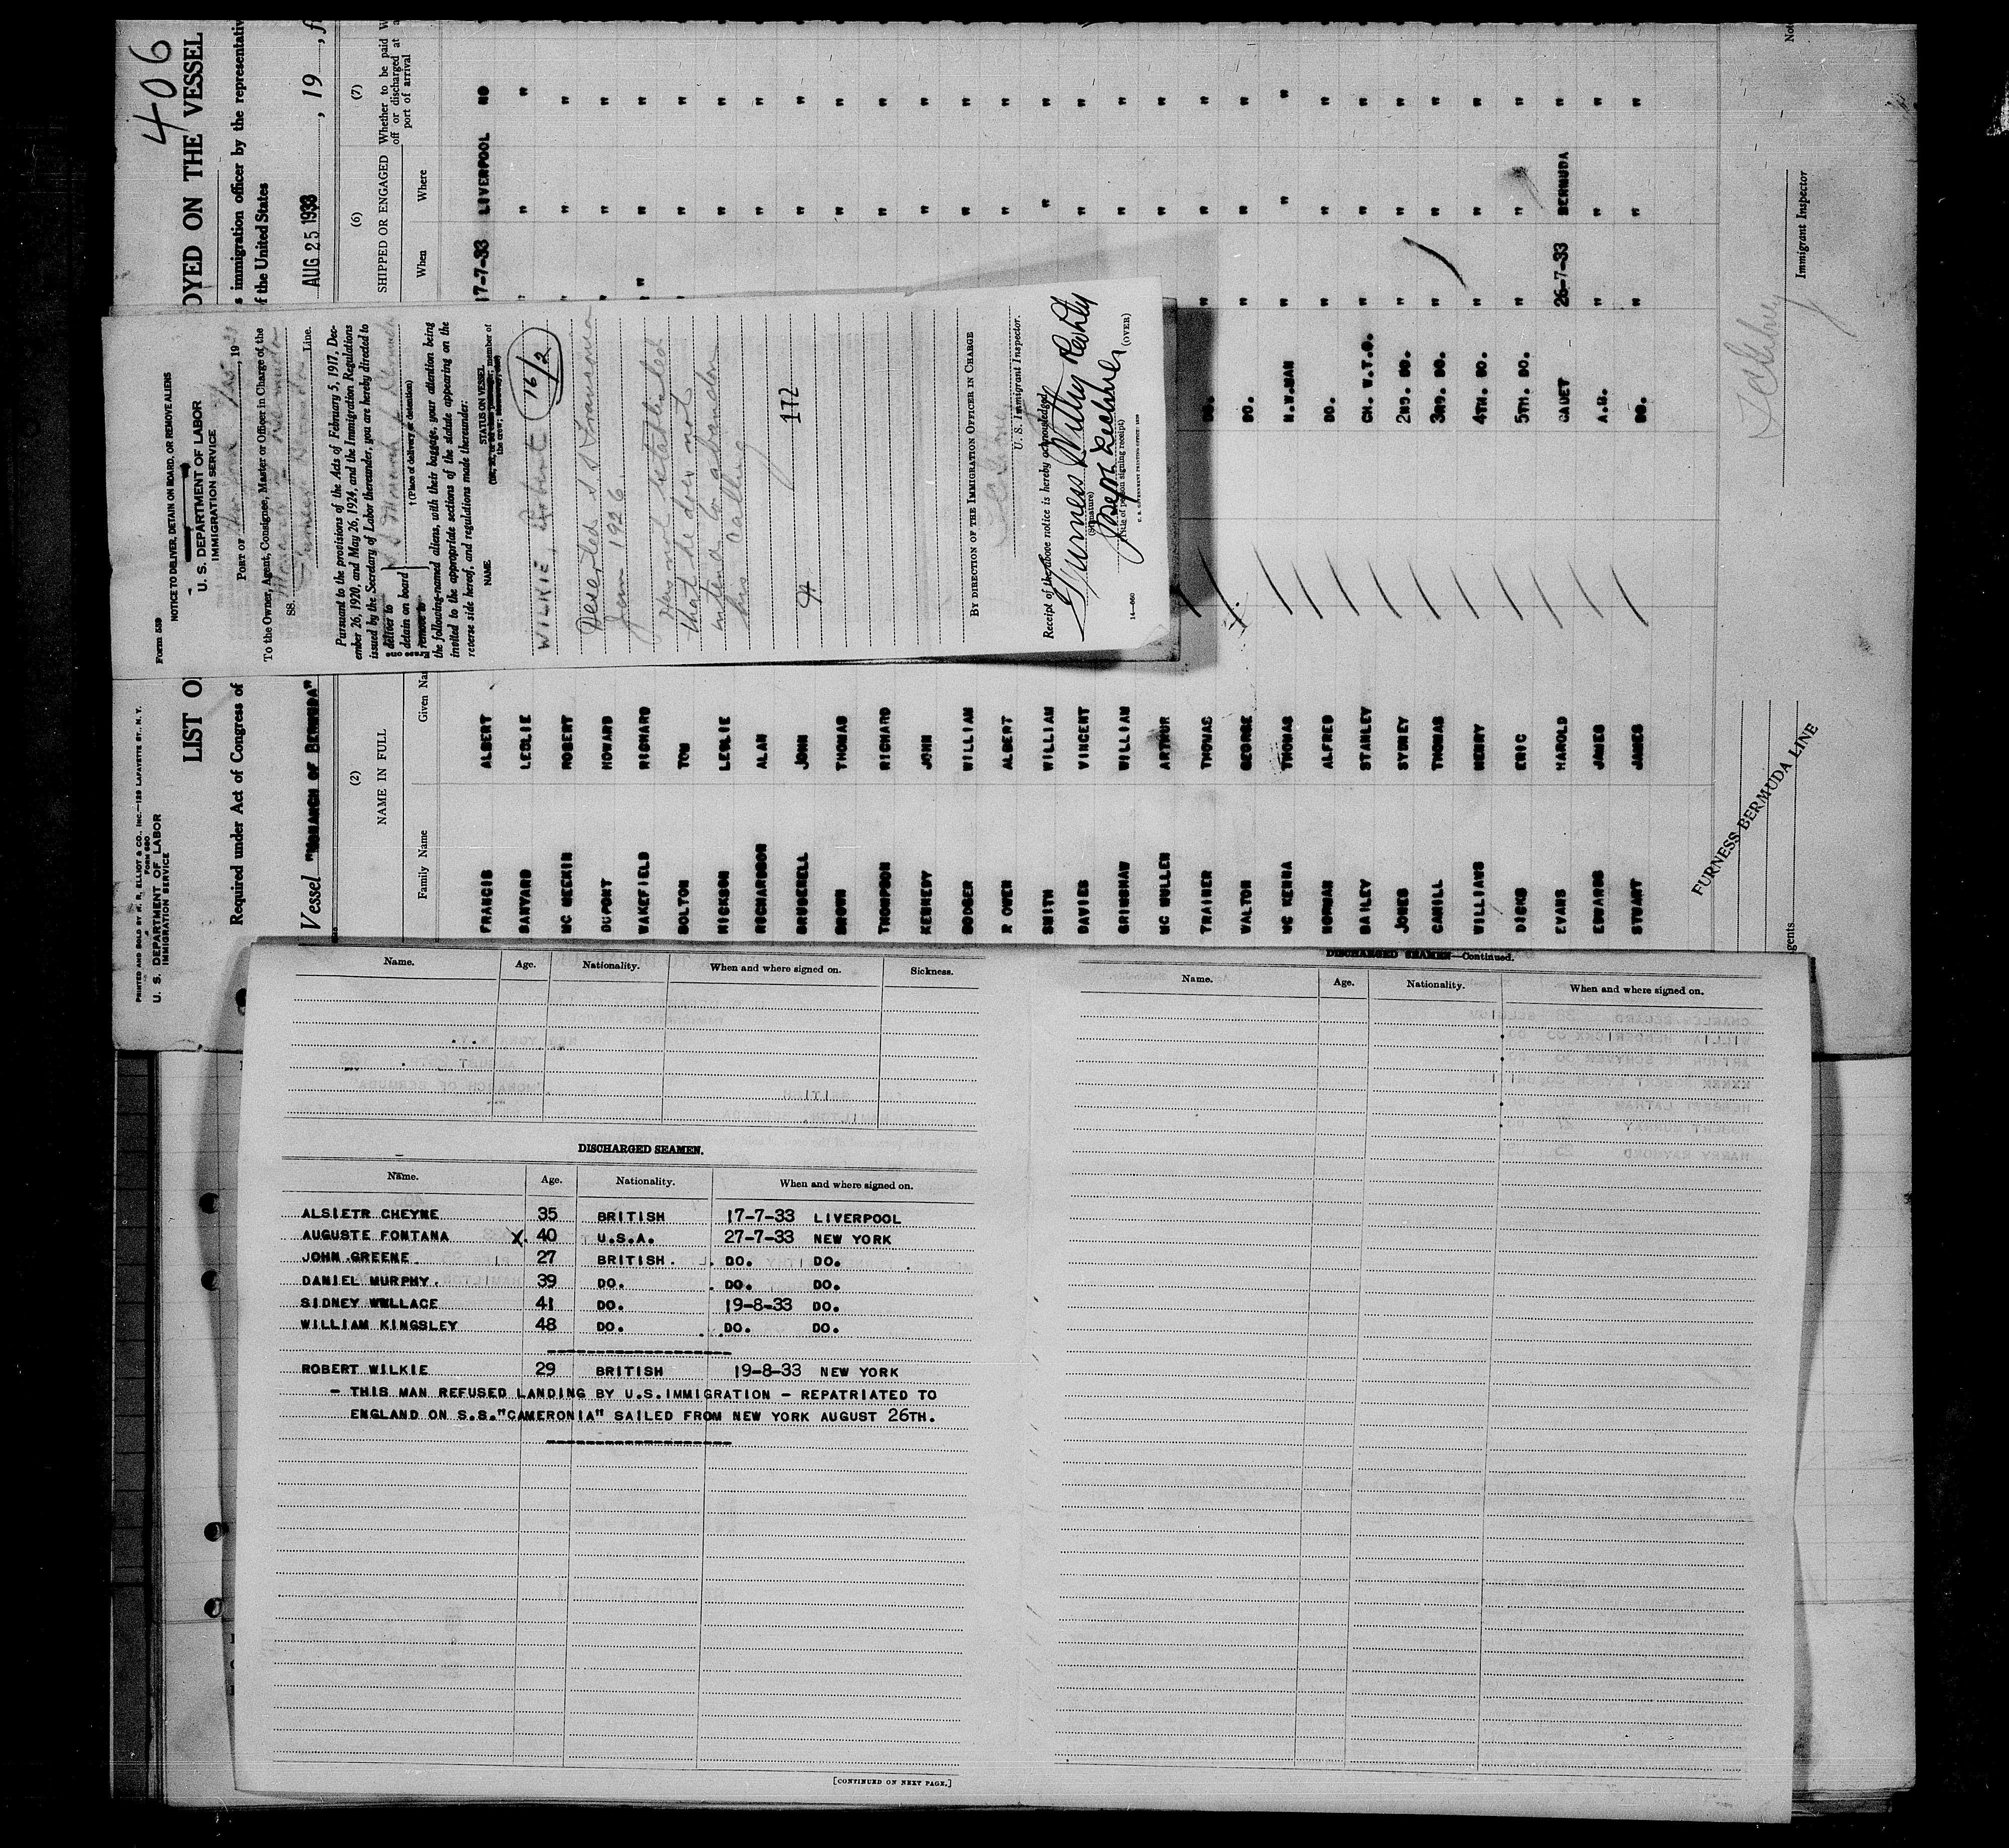 406
PRINTED AND SOLD BY M. R. ELLIOT & CO., INC.—129 LAFAYETTE ST., N. Y.
FORM 680
U. S. DEPARTMENT OF LABOR
IMMIGRATION SERVICE
LIST O
OYED ON THE VESSEL
Required under Act of Congress of
s immigration officer by the representativ
f the United States
Vessel "MONARCH OF BERMUDA"
AUG 25 1933 , 19 , f
(2)
NAME IN FULL
Family Name Given Na
(6)
SHIPPED OR ENGAGED
When Where
(7)
Whether to be paid
off or discharged at
port of arrival
FRANCIS ALBERT 17-7-33 LIVERPOOL NO
BANYARD LESLIE " " "
MC MEEKIN ROBERT " " "
DUPONT HOWARD " " "
WAKEFIELD RICHARD " " "
BOLTON TOM " "
HICKSON LESLIE " "
RICHARDSON ALAN " "
BRUGNELL JOHN " "
BROWN THOMAS " "
THOMPSON RICHARD " "
KENNEDY JOHN " "
BODGER WILLIAM " "
R OWEN ALBERT " "
SMITH WILLIAM " "
DAVIES VINCENT " "
GRIMSHAW WILLIAM " "
MC MULLEN ARTHUR " "
TRAINER THOMAS DO. " " "
WALTON GEORGE DO. " " "
MC KENNA THOMAS N.W.MAN " " "
NORMAN ALFRED DO. " " "
BAILEY STANLEY CH. W.T.O. " " "
JONES SYDNEY 2ND. DO. " " "
CAHILL THOMAS 3RD. DO. " " "
WILLIAMS HENRY 4TH. DO. " " "
DICKS ERIC 5TH. DO. " " "
EVANS HAROLD CADET 26-7-33 BERMUDA "
EDWARDS JAMES A.B. " " "
STUART JAMES DO. " " "
FURNESS BERMUDA LINE
gents
Immigrant Inspector
Not
Form 539
NOTICE TO DELIVER, DETAIN ON BOARD, OR REMOVE ALIENS
U. S. DEPARTMENT OF LABOR
IMMIGRATION SERVICE
PORT OF New York , 19
To the Owner, Agent, Consignee, Master or Officer in Charge of the
SS. Monarch of Bermuda
Furness Bermuda Line.
Pursuant to the provisions of the Acts of February 5, 1917, Dec-
ember 26, 1920, and May 26, 1924, and the Immigration Regulations
issued by the Secretary of Labor thereunder, you are hereby directed to
deliver to
detain on board S S Monarch of Bermuda
remove to
†(Place of delivery or detention)
the following-named aliens, with their baggage, your attention being
invited to the appropriate sections of the statute appearing on the
reverse side hereof, and regulations made thereunder:
NAME STATUS ON VESSEL
WILKIE, Robert 16/2
Deserted S S Transylvania
June 1926
Has not established
that he does not
intend to abandon
his calling
172
BY DIRECTION OF THE IMMIGRATION OFFICER IN CHARGE
U. S. Immigrant Inspector.
Receipt of the above notice is hereby acknowledged
Furness Withy
(Signature)
(Title of person signing receipt)
(OVER)
14—660
Name. Age. Nationality. When and where signed on. Sickness.
DISCHARGED SEAMEN.
Name. Age. Nationality. When and where signed on.
ALSIETR CHEYNE 35 BRITISH 17-7-33 LIVERPOOL
AUGUSTE FONTANA X. 40 U.S.A. 27-7-33 NEW YORK
JOHN GREENE 27 BRITISH. DO. DO.
DANIEL MURPHY. 39 DO. DO. DO.
SIDNEY WALLACE 41 DO. 19-8-33 DO.
WILLIAM KINGSLEY 48 DO. DO. DO.
ROBERT WILKIE 29 BRITISH 19-8-33 NEW YORK
- THIS MAN REFUSED LANDING BY U.S.IMMIGRATION - REPATRIATED TO
ENGLAND ON S.S."CAMERONIA" SAILED FROM NEW YORK AUGUST 26TH.
[CONTINUED ON NEXT PAGE.]
DISCHARGED SEAMEN—Continued.
Name. Age. Nationality. When and where signed on.